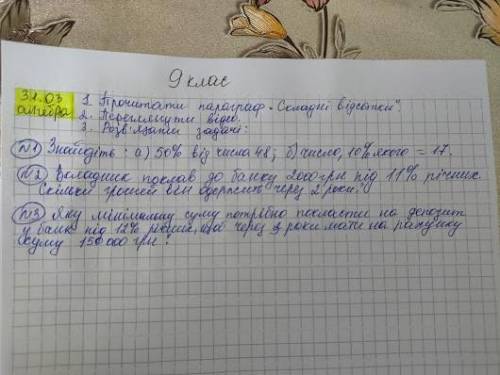 9 клас
31.03
алгебра
1. Прочитати параграф "Складні відсотки"
2. Переглянути відео.
3. Розв'язати задачі:
№1 Знайдіть: а) 50% від числа 48; б) число, 10% якого = 17.
№2 Вкладник поклав до банку 2000 грн під 11% річних.
Скільки грошей він одержить через 2 роки?
№3 Яку мінімальну суму потрібно покласти на депозит
у банк під 12% річних, що через роки мати на рахунку
суму 150 000 грн?